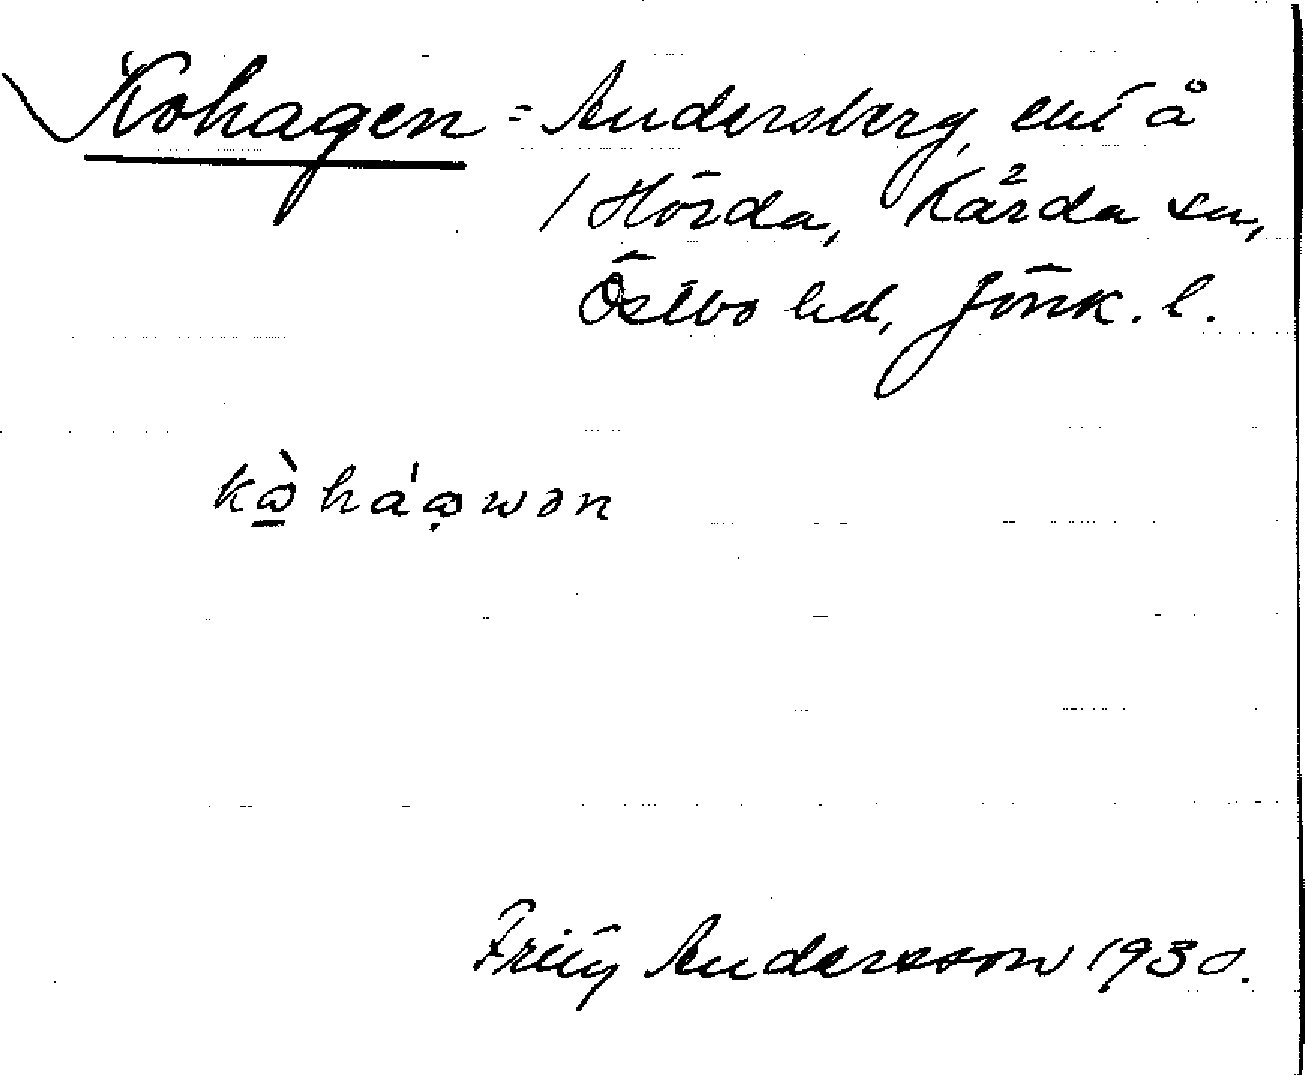 Kohagen = Andersberg, ent å
/ Hörda, Kårda sn,
Östbo hd, Jönk. l.
Fritz Andersson 1930.